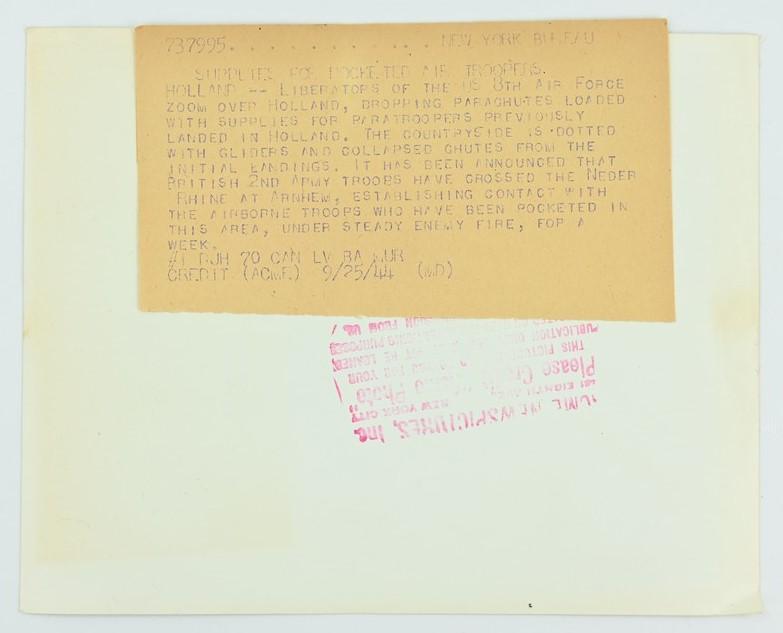 737995. . . . . . . . . . . . NEW YORK BUREAU
SUPPLIES FOR POCKETED AIR TROOPERS.
HOLLAND -- LIBERATORS OF THE US 8TH AIR FORCE
ZOOM OVER HOLLAND, DROPPING PARACHUTES LOADED
WITH SUPPLIES FOR PARATROOPERS PREVIOUSLY
LANDED IN HOLLAND. THE COUNTRYSIDE IS DOTTED
WITH GLIDERS AND COLLAPSED CHUTES FROM THE
INITIAL LANDINGS. IT HAS BEEN ANNOUNCED THAT
BRITISH 2ND ARMY TROOPS HAVE CROSSED THE NEDER
RHINE AT ARNHEM, ESTABLISHING CONTACT WITH
THE AIRBORNE TROOPS WHO HAVE BEEN POCKETED IN
THIS AREA, UNDER STEADY ENEMY FIRE, FOR A
WEEK.
#1 DJH 70 CAN LV BA MUR
CREDIT (ACME) 9/25/44 (MD)
NEWSPICTURES, Inc.
EIGHTH AVE. NEW YORK CITY
Please Photo"
THIS PICTURE FOR YOUR
PUBLICATION ONLY BE LOANED,
PURPOSES
FROM US.